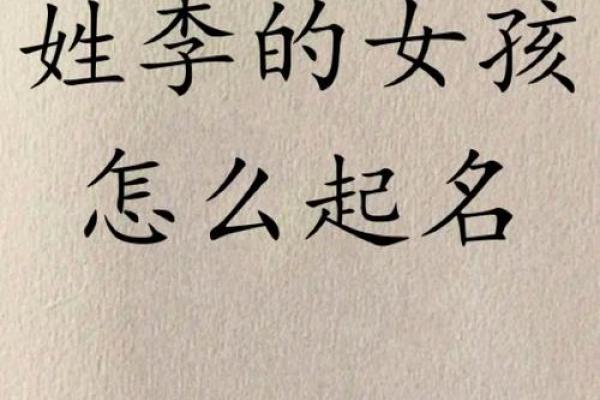 姓李的女孩
怎么起名